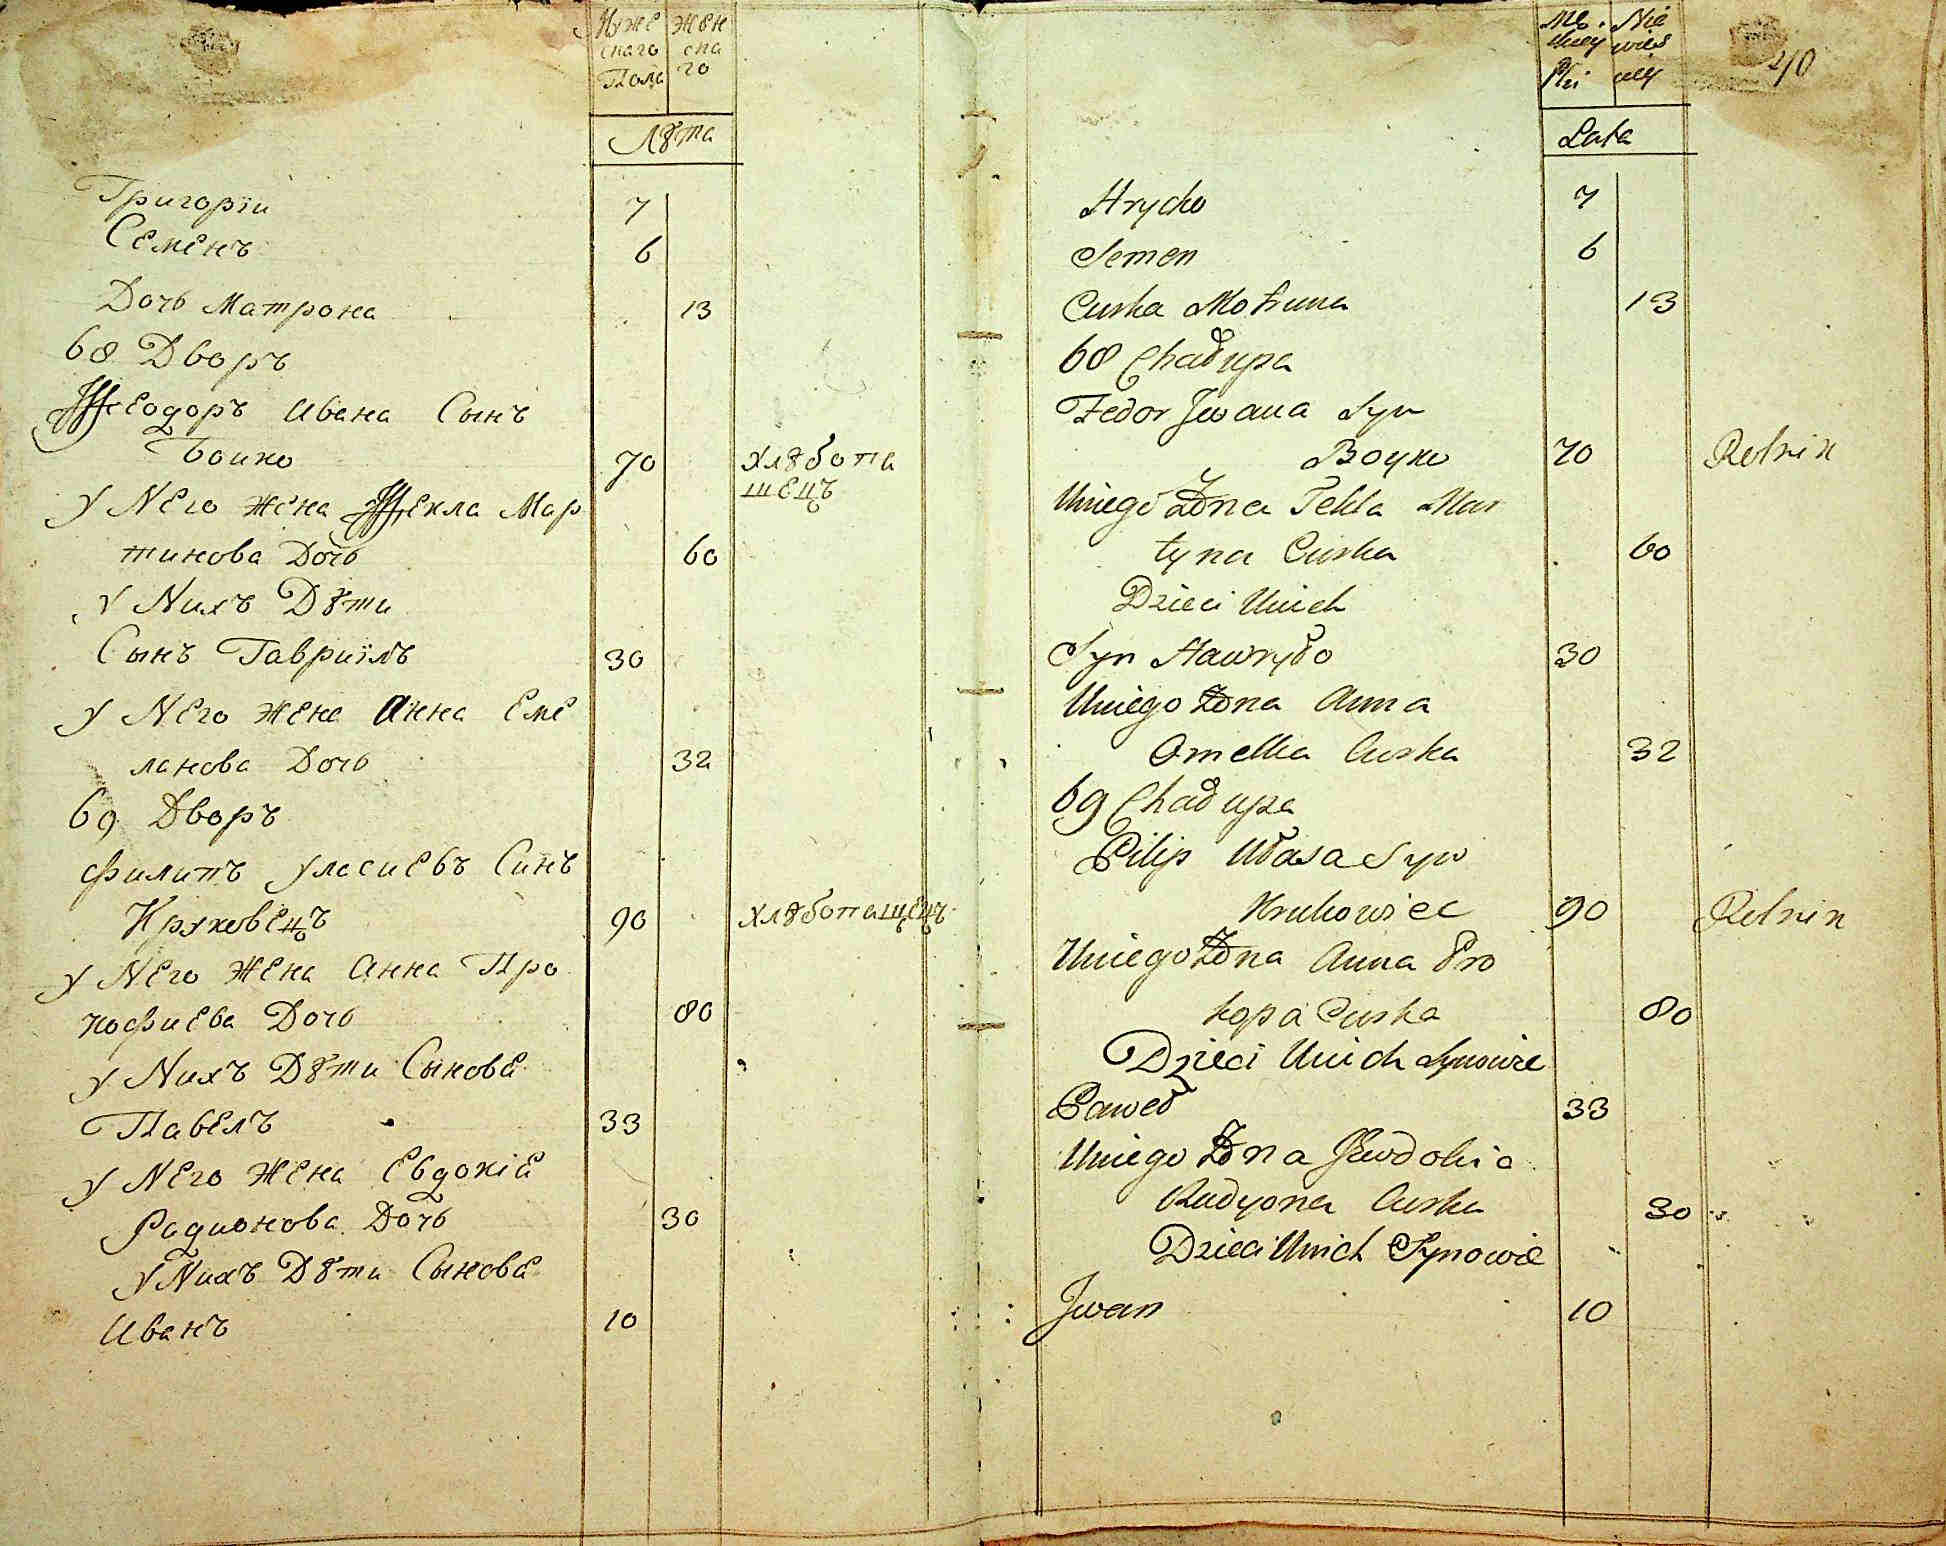 Муже Жен
скаго ска
Пола го
Лѣта
Григорїи 7
Семенъ 6
Дочь Матрона 13
68 Дворъ
Ѳеодоръ Ивана Сынъ
Боико 70 Хлѣбопа
шецъ
у Него жена Ѳекла Мар
тинова Дочь 60
у Нихъ Дѣти
Сынъ Гавриїлъ 30
у Него жена Анна Еме
ланова Дочь 32
69 Дворъ
Филипъ Уласиевъ Синъ
Круковецъ 90 Хлѣбопашецъ
у Него жена Анна Про
кофиева Дочь 80
у Нихъ Дѣти Сынове
Павелъ 33
у Него жена Евдокїе
Радионова Дочь 30
у Нихъ Дѣти Сынове
Иванъ 10
40
Mę Nie
skiey wies
Płci ciey
Lata
Hrycko 7
Semen 6
Curka Motruna 13
68 Chałupa
Fedor Jwana Syn
Boyko 70 Rolnik
Uniego Żona Tekla Mar
tyna Curka 60
Dzieci Unich
Syn Hawryło 30
Uniego Żona Anna
Omelka Curka 32
69 Chałupa
Pilip Ułasa Syn
Krukowiec 90 Rolnik
Uniego Żona Anna Pro
kopa Curka 80
Dzieci Unich Synowie
Paweł 33
Uniego Żona Jewdokia
Radyona Curka 30
Dzieci Unich Synowie
Jwan 10